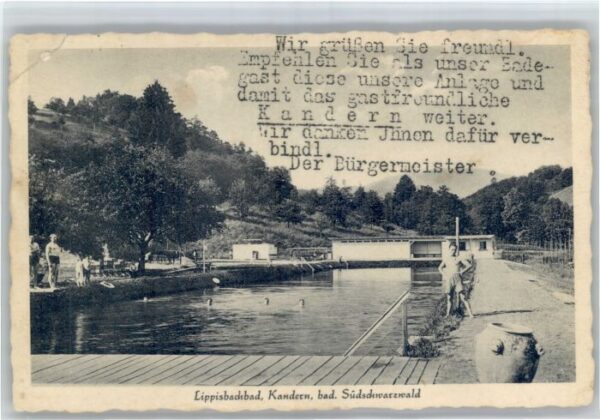 Wir grüßen Sie freundl.
Empfehlen Sie als unser Bade-
gast diese unsere Anlage und
damit das gastfreundliche
K a n d e r n weiter.
Wir danken Jhnen dafür ver-
bindl.
Der Bürgermeister.
Lippisbachbad, Kandern, bad. Südschwarzwald